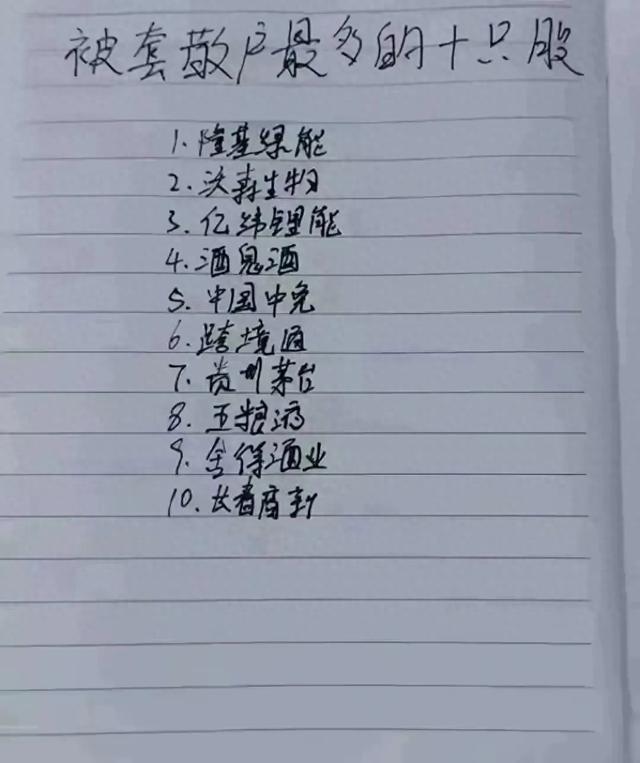 被套散户最多的十只股
1. 隆基绿能
2. 沃森生物
3. 亿纬锂能
4. 酒鬼酒
5. 中国中免
6. 跨境通
7. 贵州茅台
8. 五粮液
9. 舍得酒业
10. 长春高新